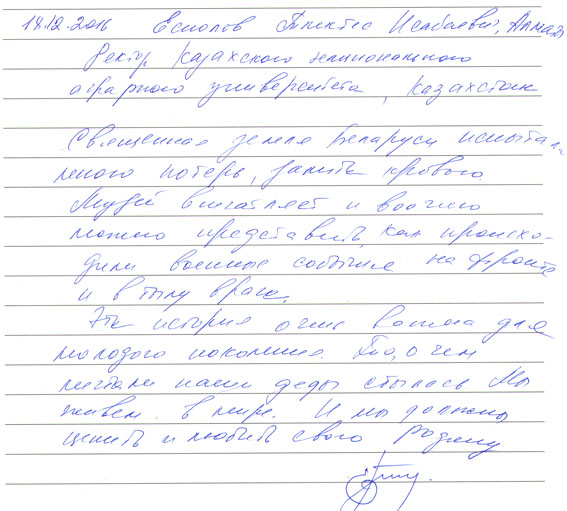 18.12.2016 Есполов Тлектес Исабаевич, Алматы
Ректор Казахского национального
аграрного университета, Казахстан
Священная земля Беларуси испытала
много потерь, залита кровью.
Музей впечатляет и воочию
можно представить, как происхо-
дили военные события на фронте
и в тылу врага.
Эта история очень важна для
молодого поколения. То, о чем
мечтали наши деды сбылось. Мы
живем в мире. И мы должны
ценить и любить свою Родину